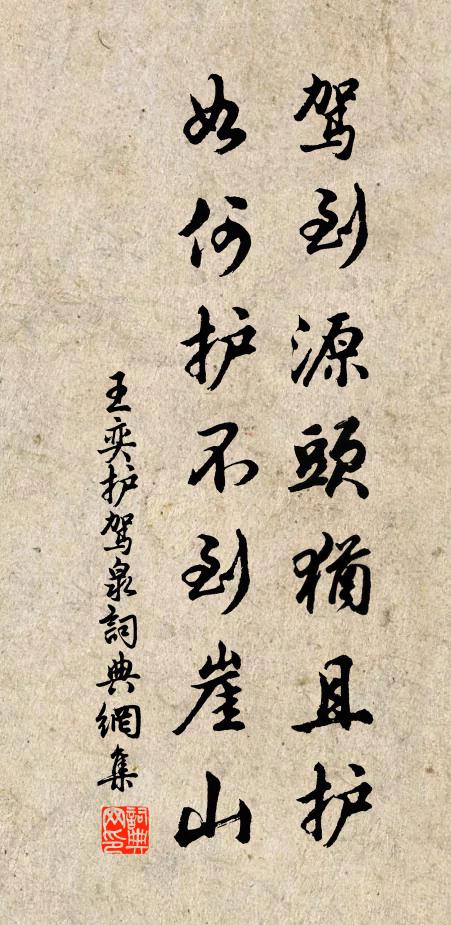 驾到源頭猶且护
如何护不到崖山
王奕护驾泉詞典網集
詞典网印